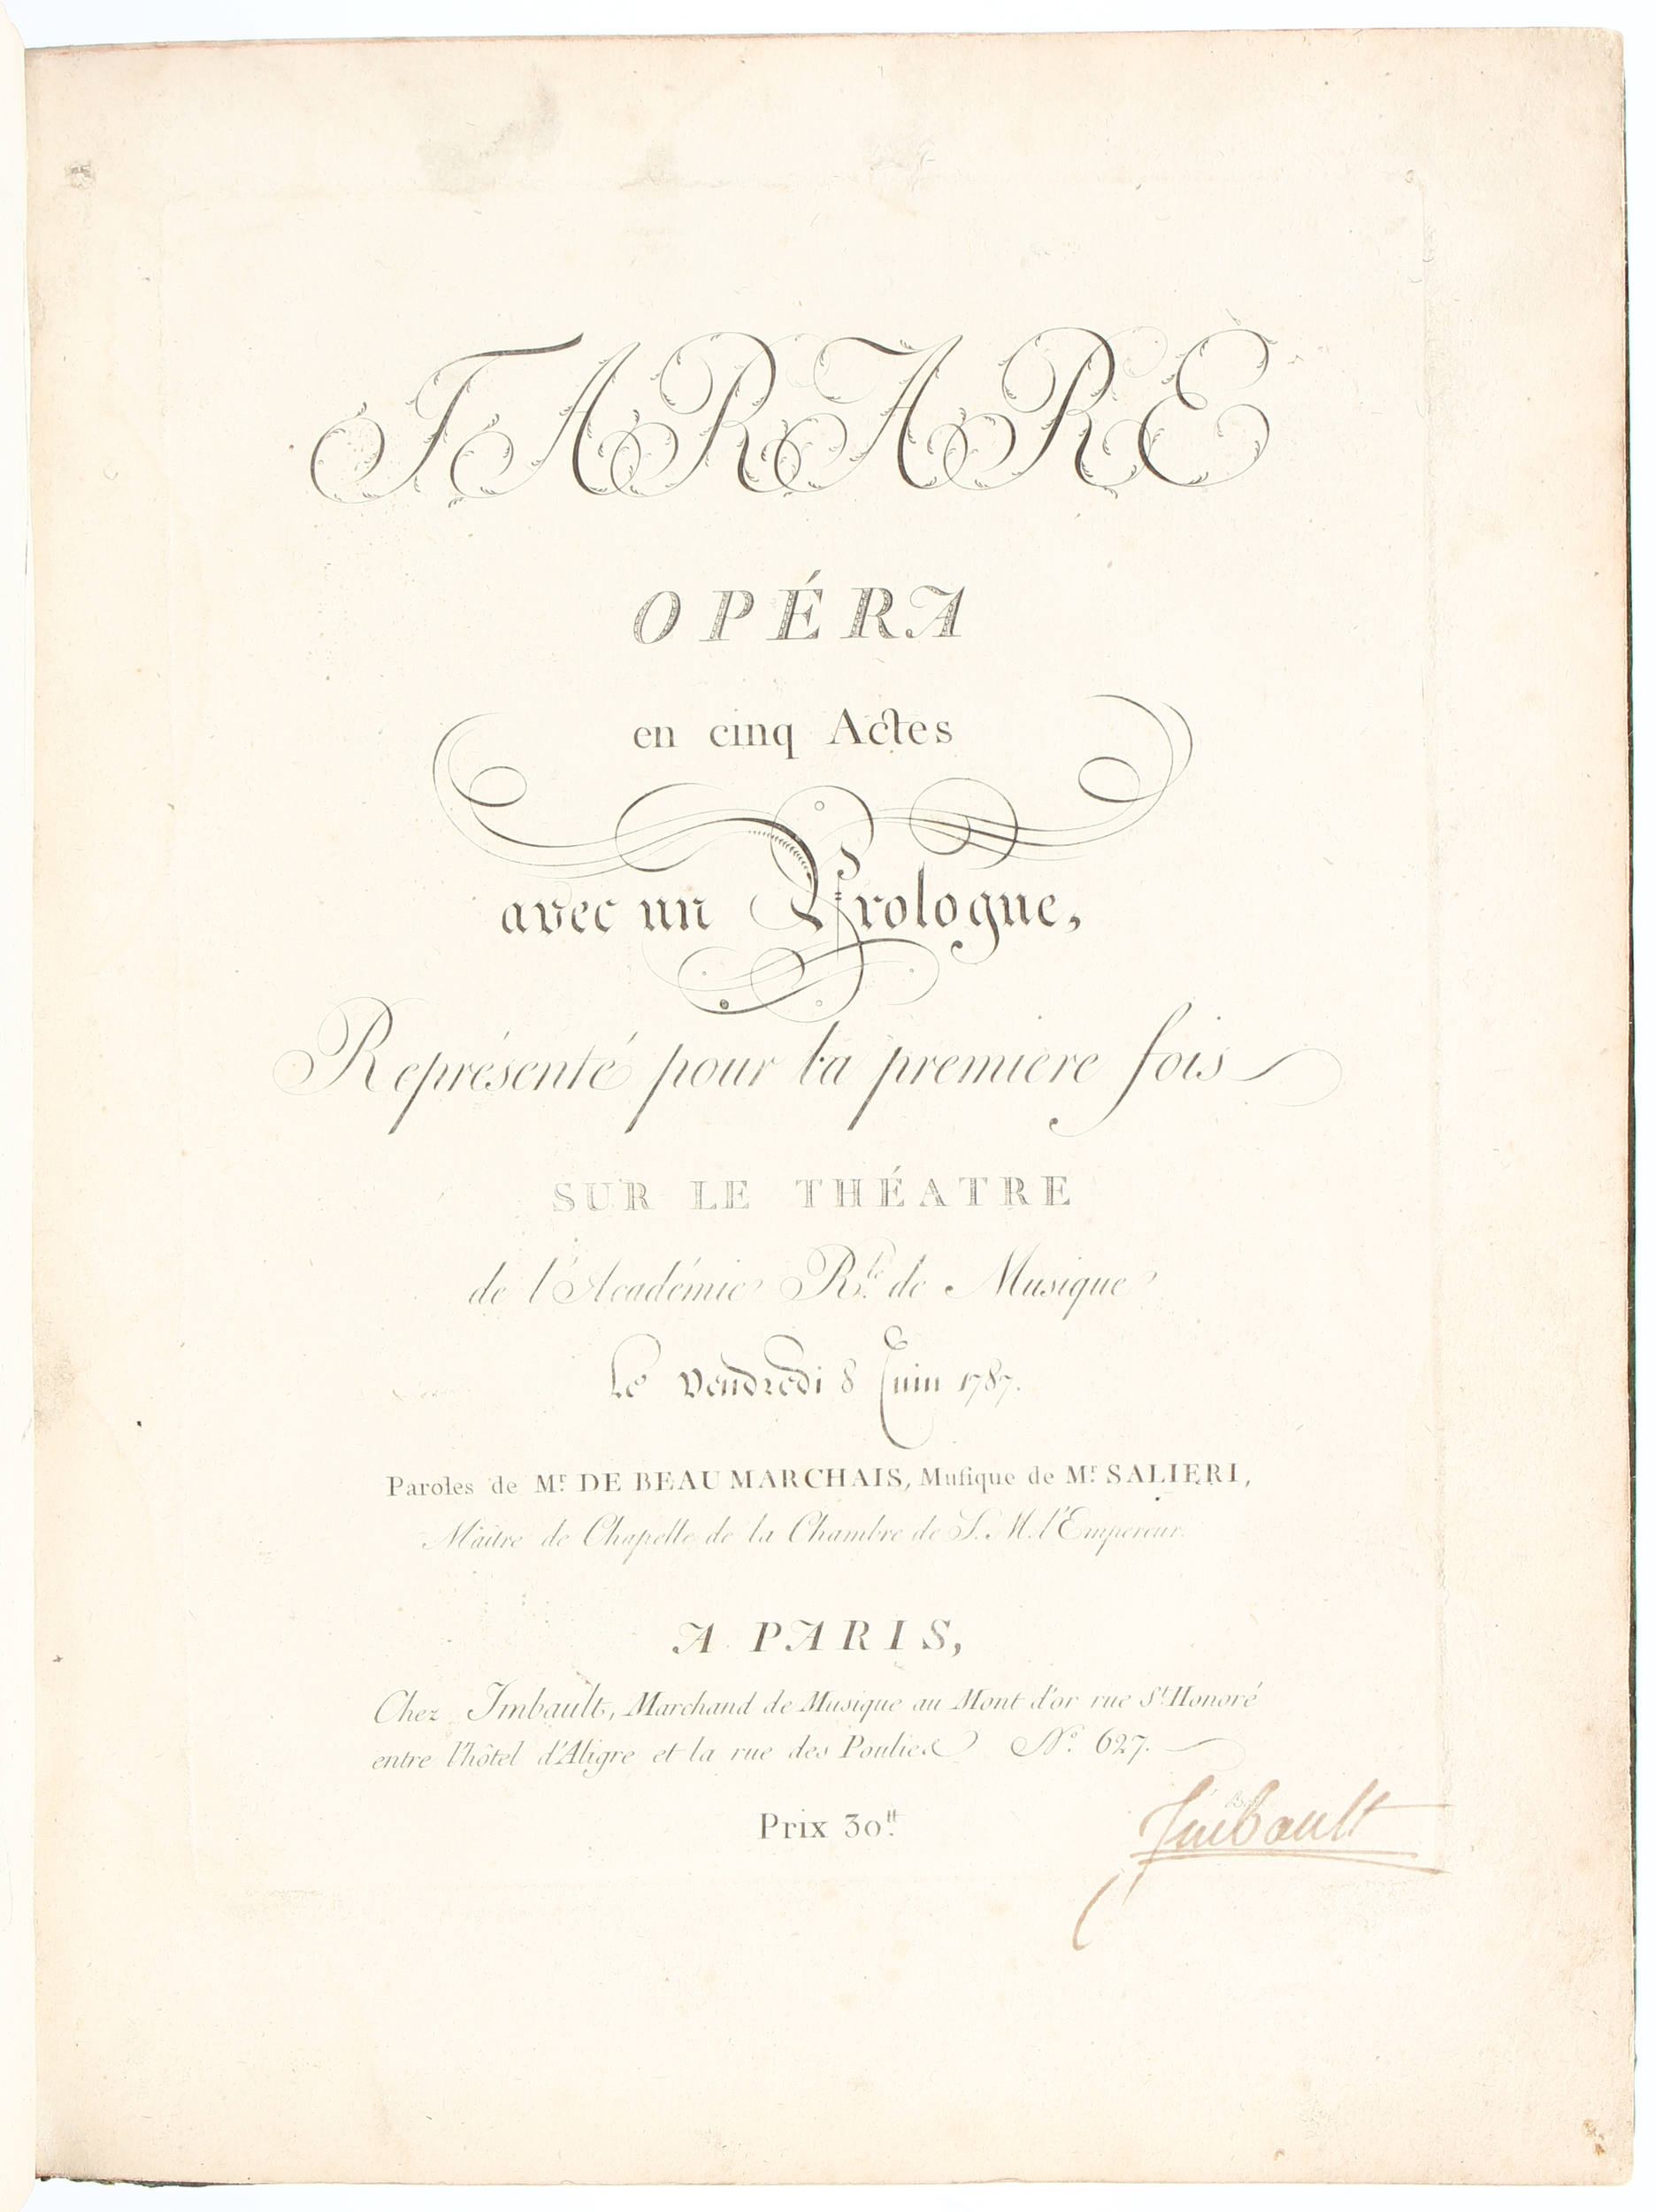 TARARE
OPÉRA
en cinq Actes
avec un Prologue,
Représenté pour la premiere fois
SUR LE THÉATRE
de l'Académie R.le de Musique
Le Vendredi 8 Juin 1787.
Paroles de Mr. DE BEAUMARCHAIS, Musique de Mr. SALIERI,
Maitre de Chapelle de la Chambre de S. M. l'Empereur.
A PARIS,
Chez Imbault, Marchand de Musique au Mont d'or rue St. Honoré
entre l'hôtel d'Aligre et la rue des Poulies No. 627.
Prix 30tt.
Imbault